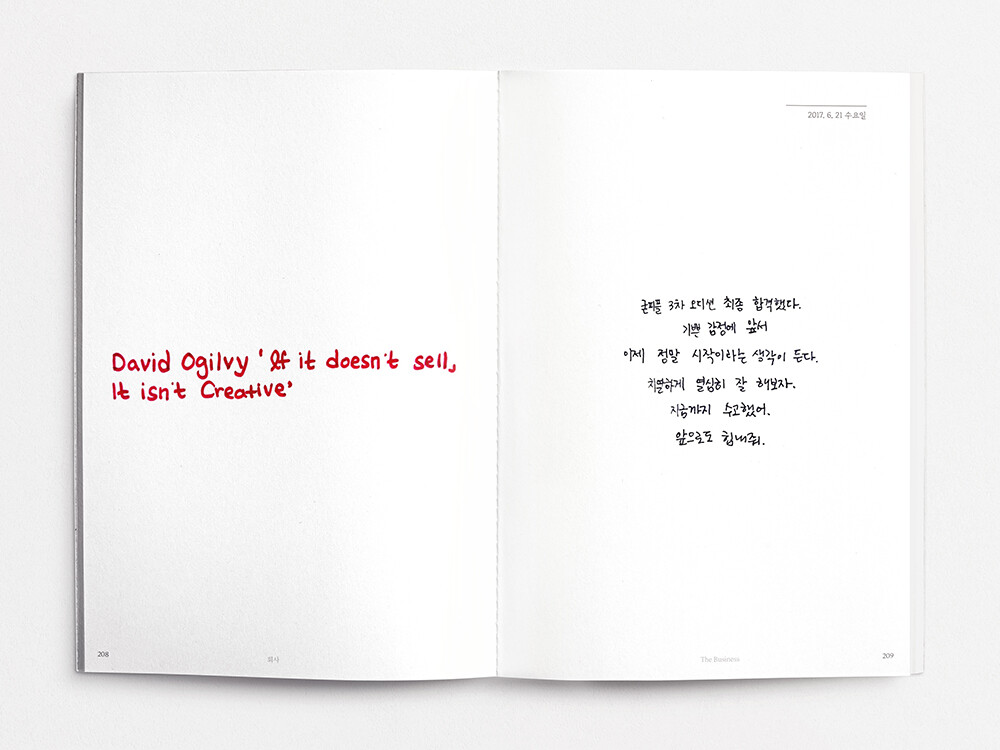 David Ogilvy ‘If it doesn't sell,
It isn't Creative’
208
회사
2017. 6. 21 수요일
굳피플 3차 오디션 최종 합격했다.
기쁜 감정에 앞서
이제 정말 시작이라는 생각이 든다.
치열하게 열심히 잘 해보자.
지금까지 수고했어.
앞으로도 힘내줘.
The Business
209